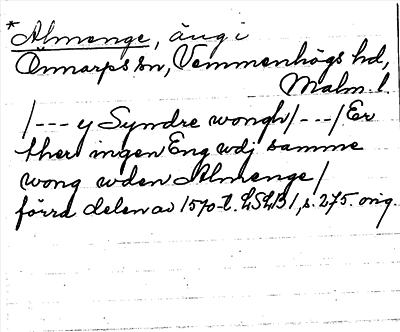 * Almenge, äng i
Önnarps sn, Vemmenhögs hd,
Malm. l.
/--- y Syndre wongh/---/ Er
ther ingen Eng wdj samme
wong wden Almenge/
förra delen av 1570-t. LSLB I, s. 275. orig.